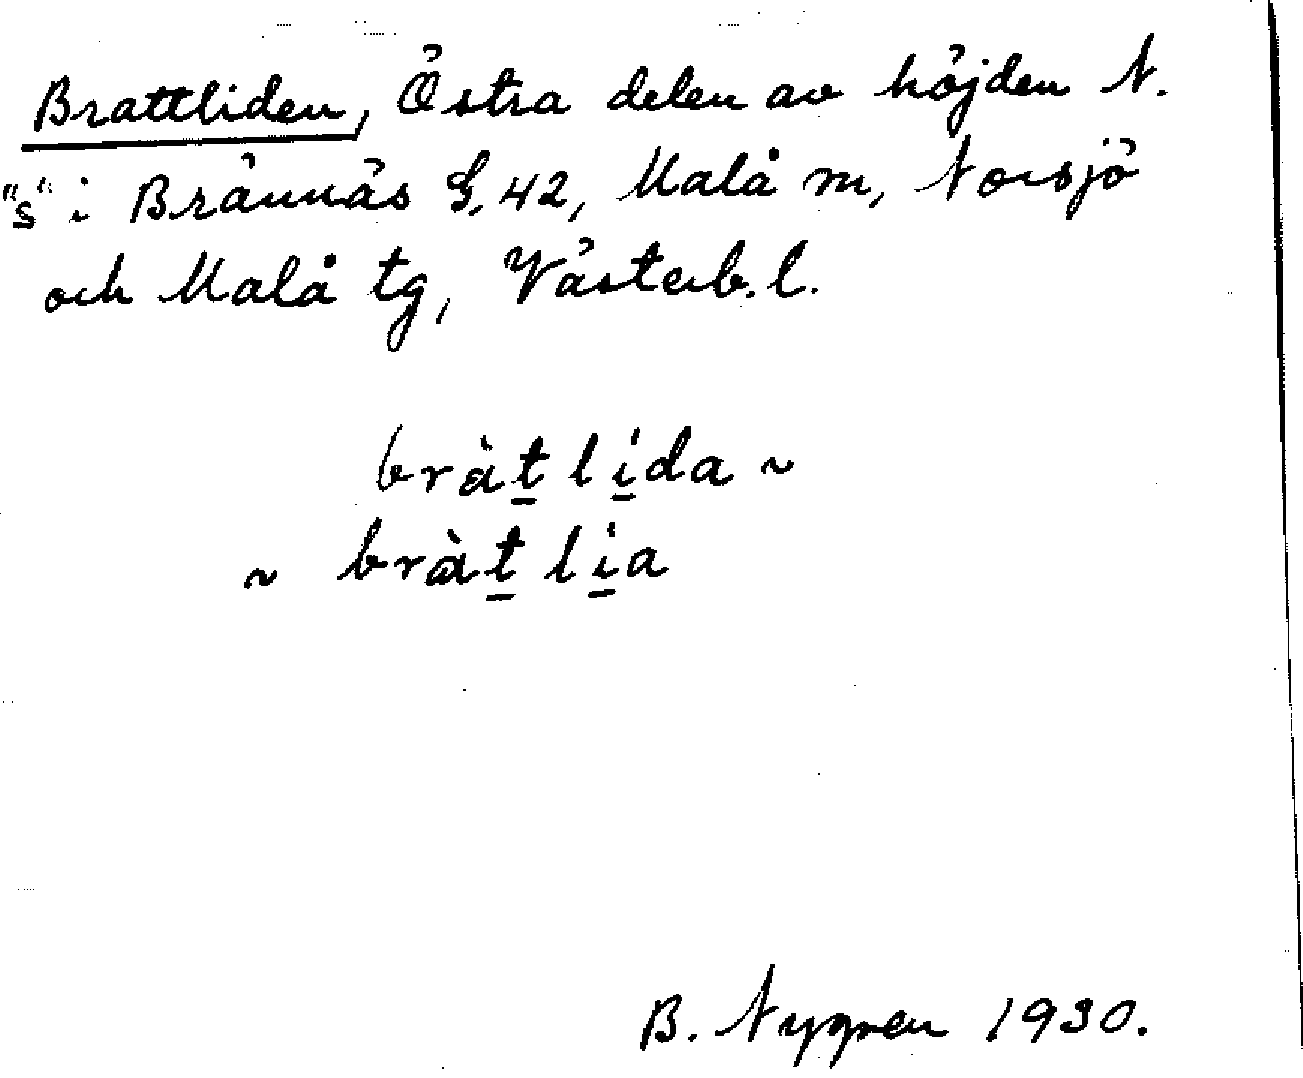 Brattliden, Östra delen av höjden N.
"s" i Brännäs G. 42, Malå m, Norsjö
och Malå tg, Västerb. l.
bràt̲ li̲da ~
~ bràt̲ li̲a
B. Nygren 1930.